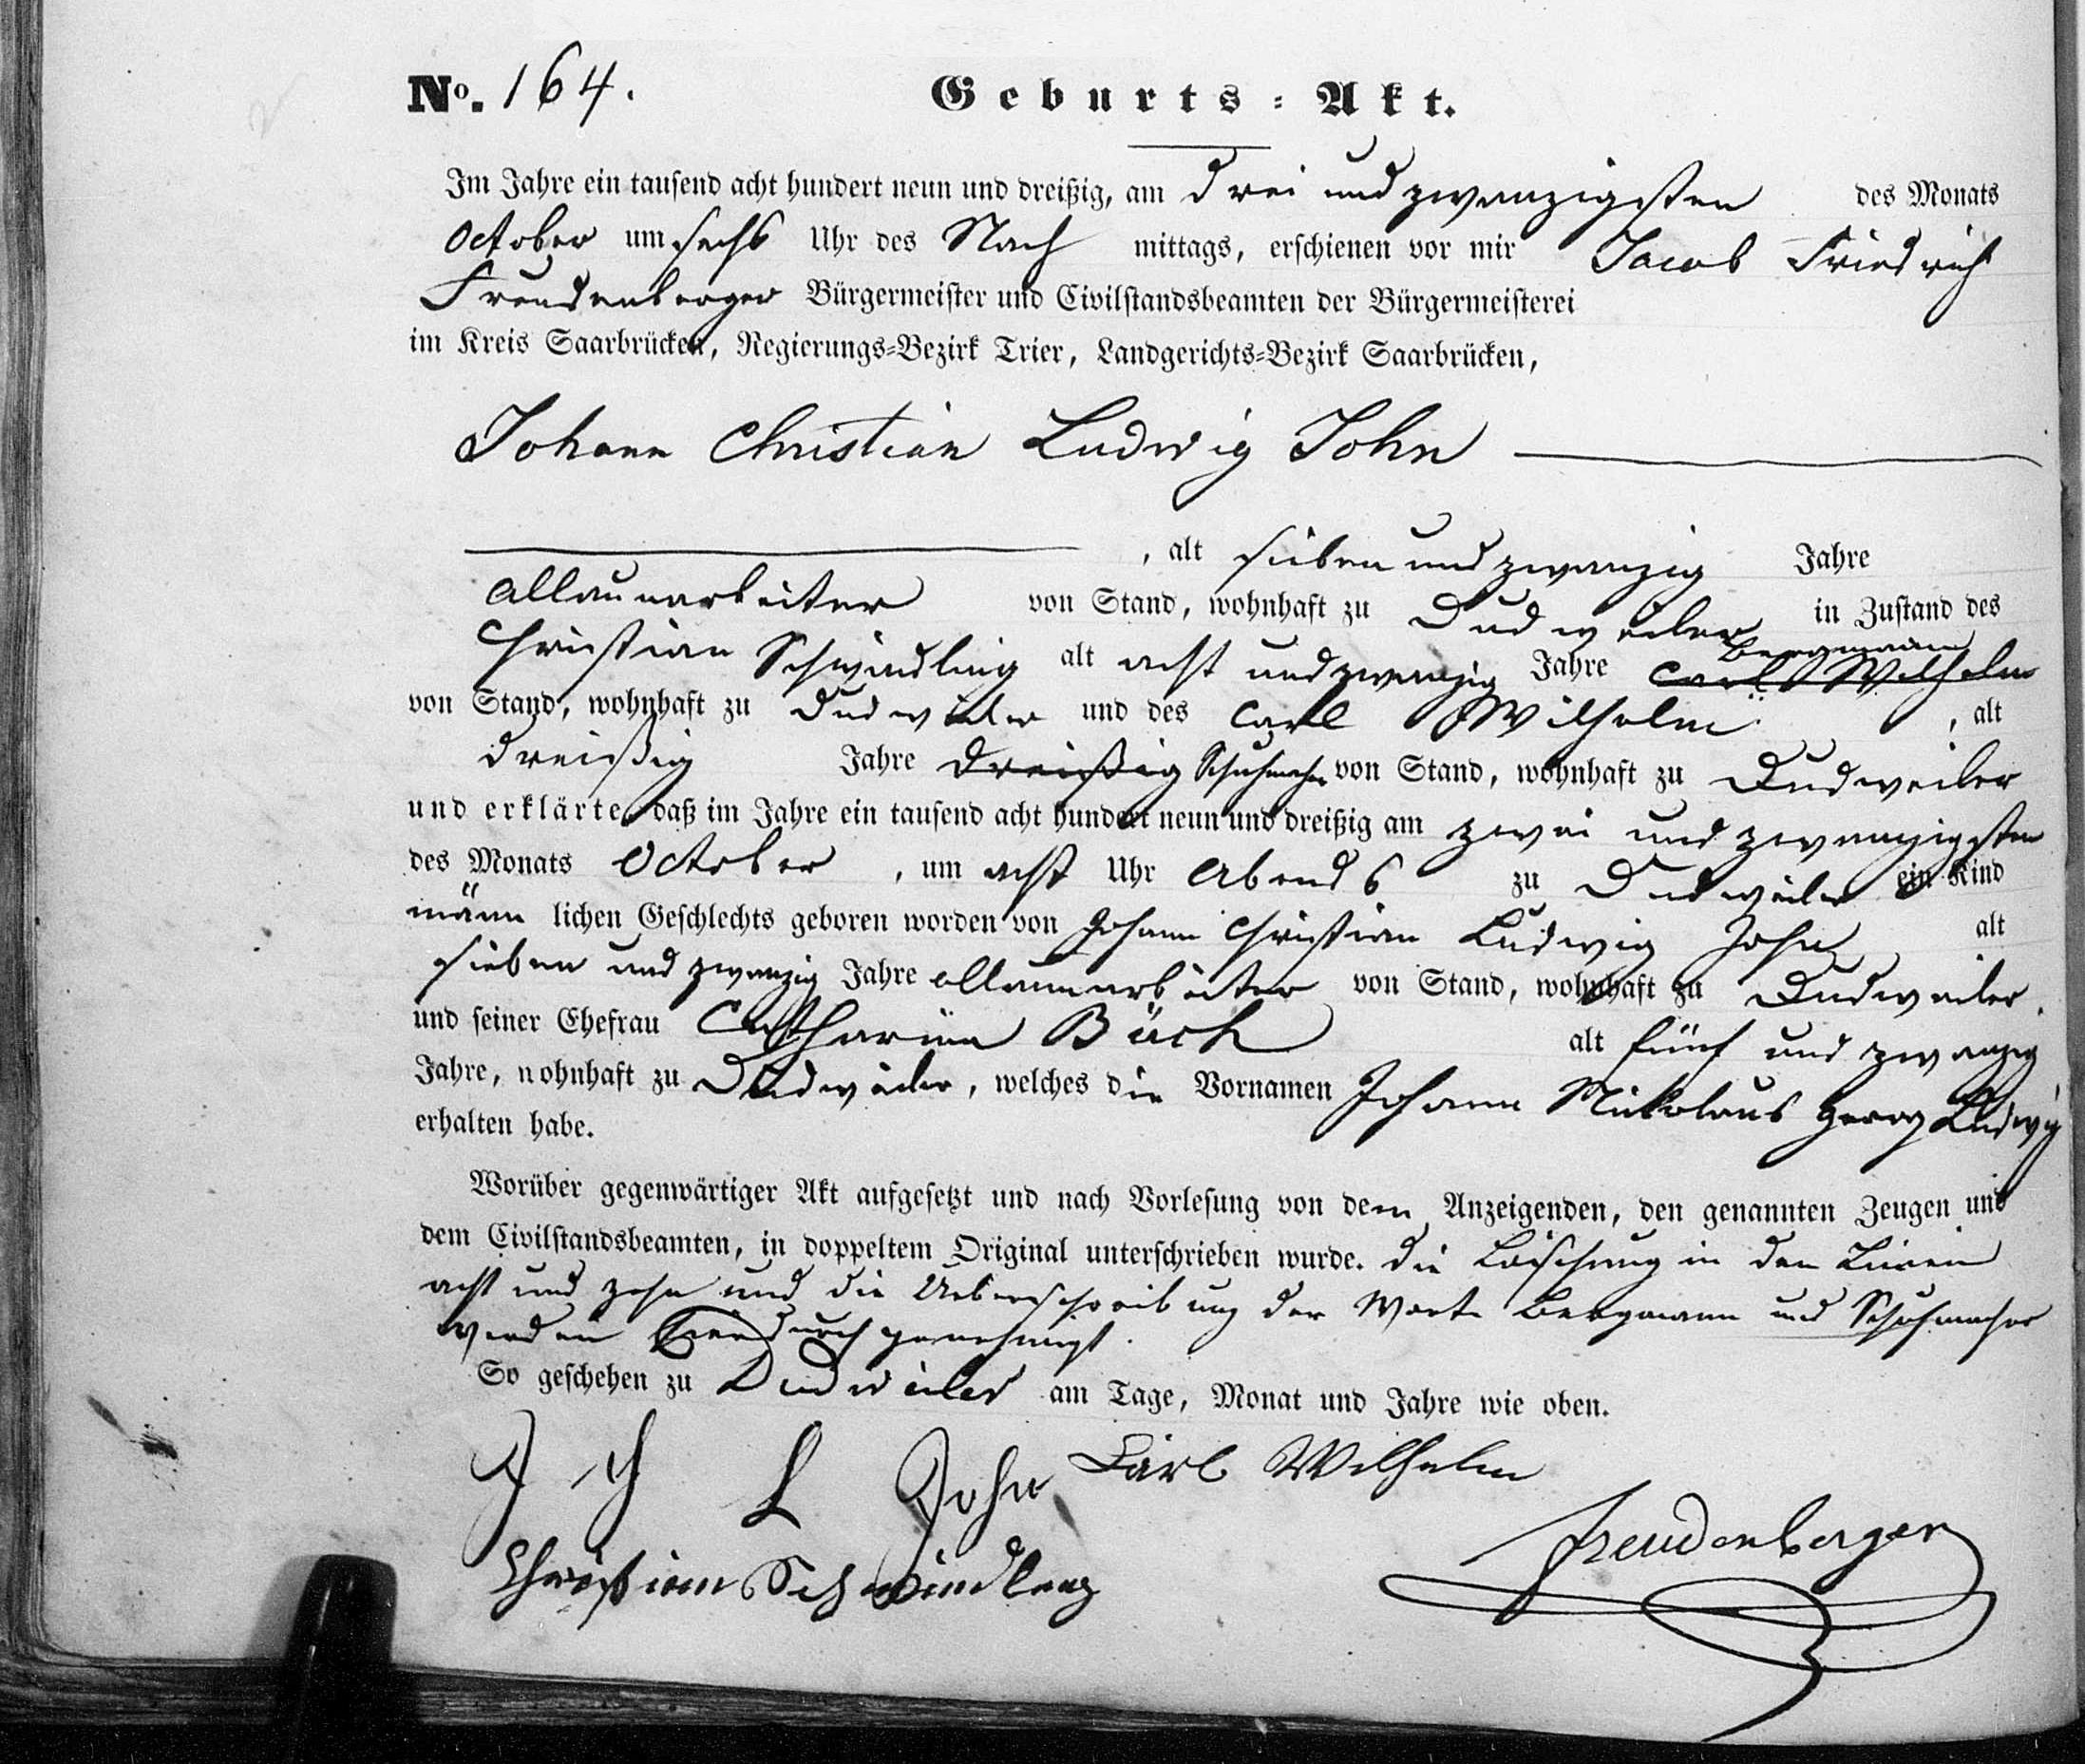 No. 164. Geburts-Akt.
Im Jahre ein tausend acht hundert neun und dreißig, am drei und zwanzigsten des Monats
October um sechs Uhr des Nach mittags, erschienen vor mir Jacob Friedrich
Freudenberger Bürgermeister und Civilstandsbeamten der Bürgermeisterei
im Kreis Saarbrücken, Regierungs-Bezirk Trier, Landgerichts-Bezirk Saarbrücken,
Johann Christian Ludwig John
, alt sieben und zwanzig Jahre
Allaunarbeiter von Stand, wohnhaft zu Dudweiler in Zustand des
Bergmann
Christian Schwindling alt acht und zwanzig Jahre Carl Wilhelm
von Stand, wohnhaft zu Dudweiler und des Carl Wilhelm, alt
dreißig Jahre dreißig Schuhmacher von Stand, wohnhaft zu Dudweiler
und erklärte, daß im Jahre ein tausend acht hundert neun und dreißig am zwei und zwanzigsten
des Monats October, um acht Uhr Abends zu Dudweiler ein Kind
männ lichen Geschlechts geboren worden von Johann Christian Ludwig John alt
sieben und zwanzig Jahre Allaunarbeiter von Stand, wohnhaft zu Dudweiler.
und seiner Ehefrau Catharina Bäch alt fünf und zwanzig
Jahre, wohnhaft zu Dudweiler, welches die Vornamen Johann Nikolaus Georg Ludwig
erhalten habe.
Worüber gegenwärtiger Akt aufgesetzt und nach Vorlesung von dem Anzeigenden, den genannten Zeugen und
dem Civilstandsbeamten, in doppeltem Original unterschrieben wurde. die Löschung in den Linien
acht und zehn und die Ueberschreibung der Worte Bergmann und Schuhmacher
werden hierdurch genehmigt.
So geschehen zu Dudweiler am Tage, Monat und Jahre wie oben.
J Ch L John Carl Wilhelm
Freudenberger
Christian Schwindling